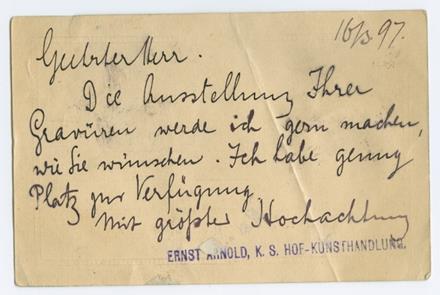 16/3 97.
Geehrter Herr.
Die Ausstellung Ihrer
Gravüren werde ich gern machen,
wie Sie wünschen. Ich habe genug
Platz zur Verfügung
Mit größter Hochachtung
ERNST ARNOLD, K. S. HOF-KUNSTHANDLUNG.